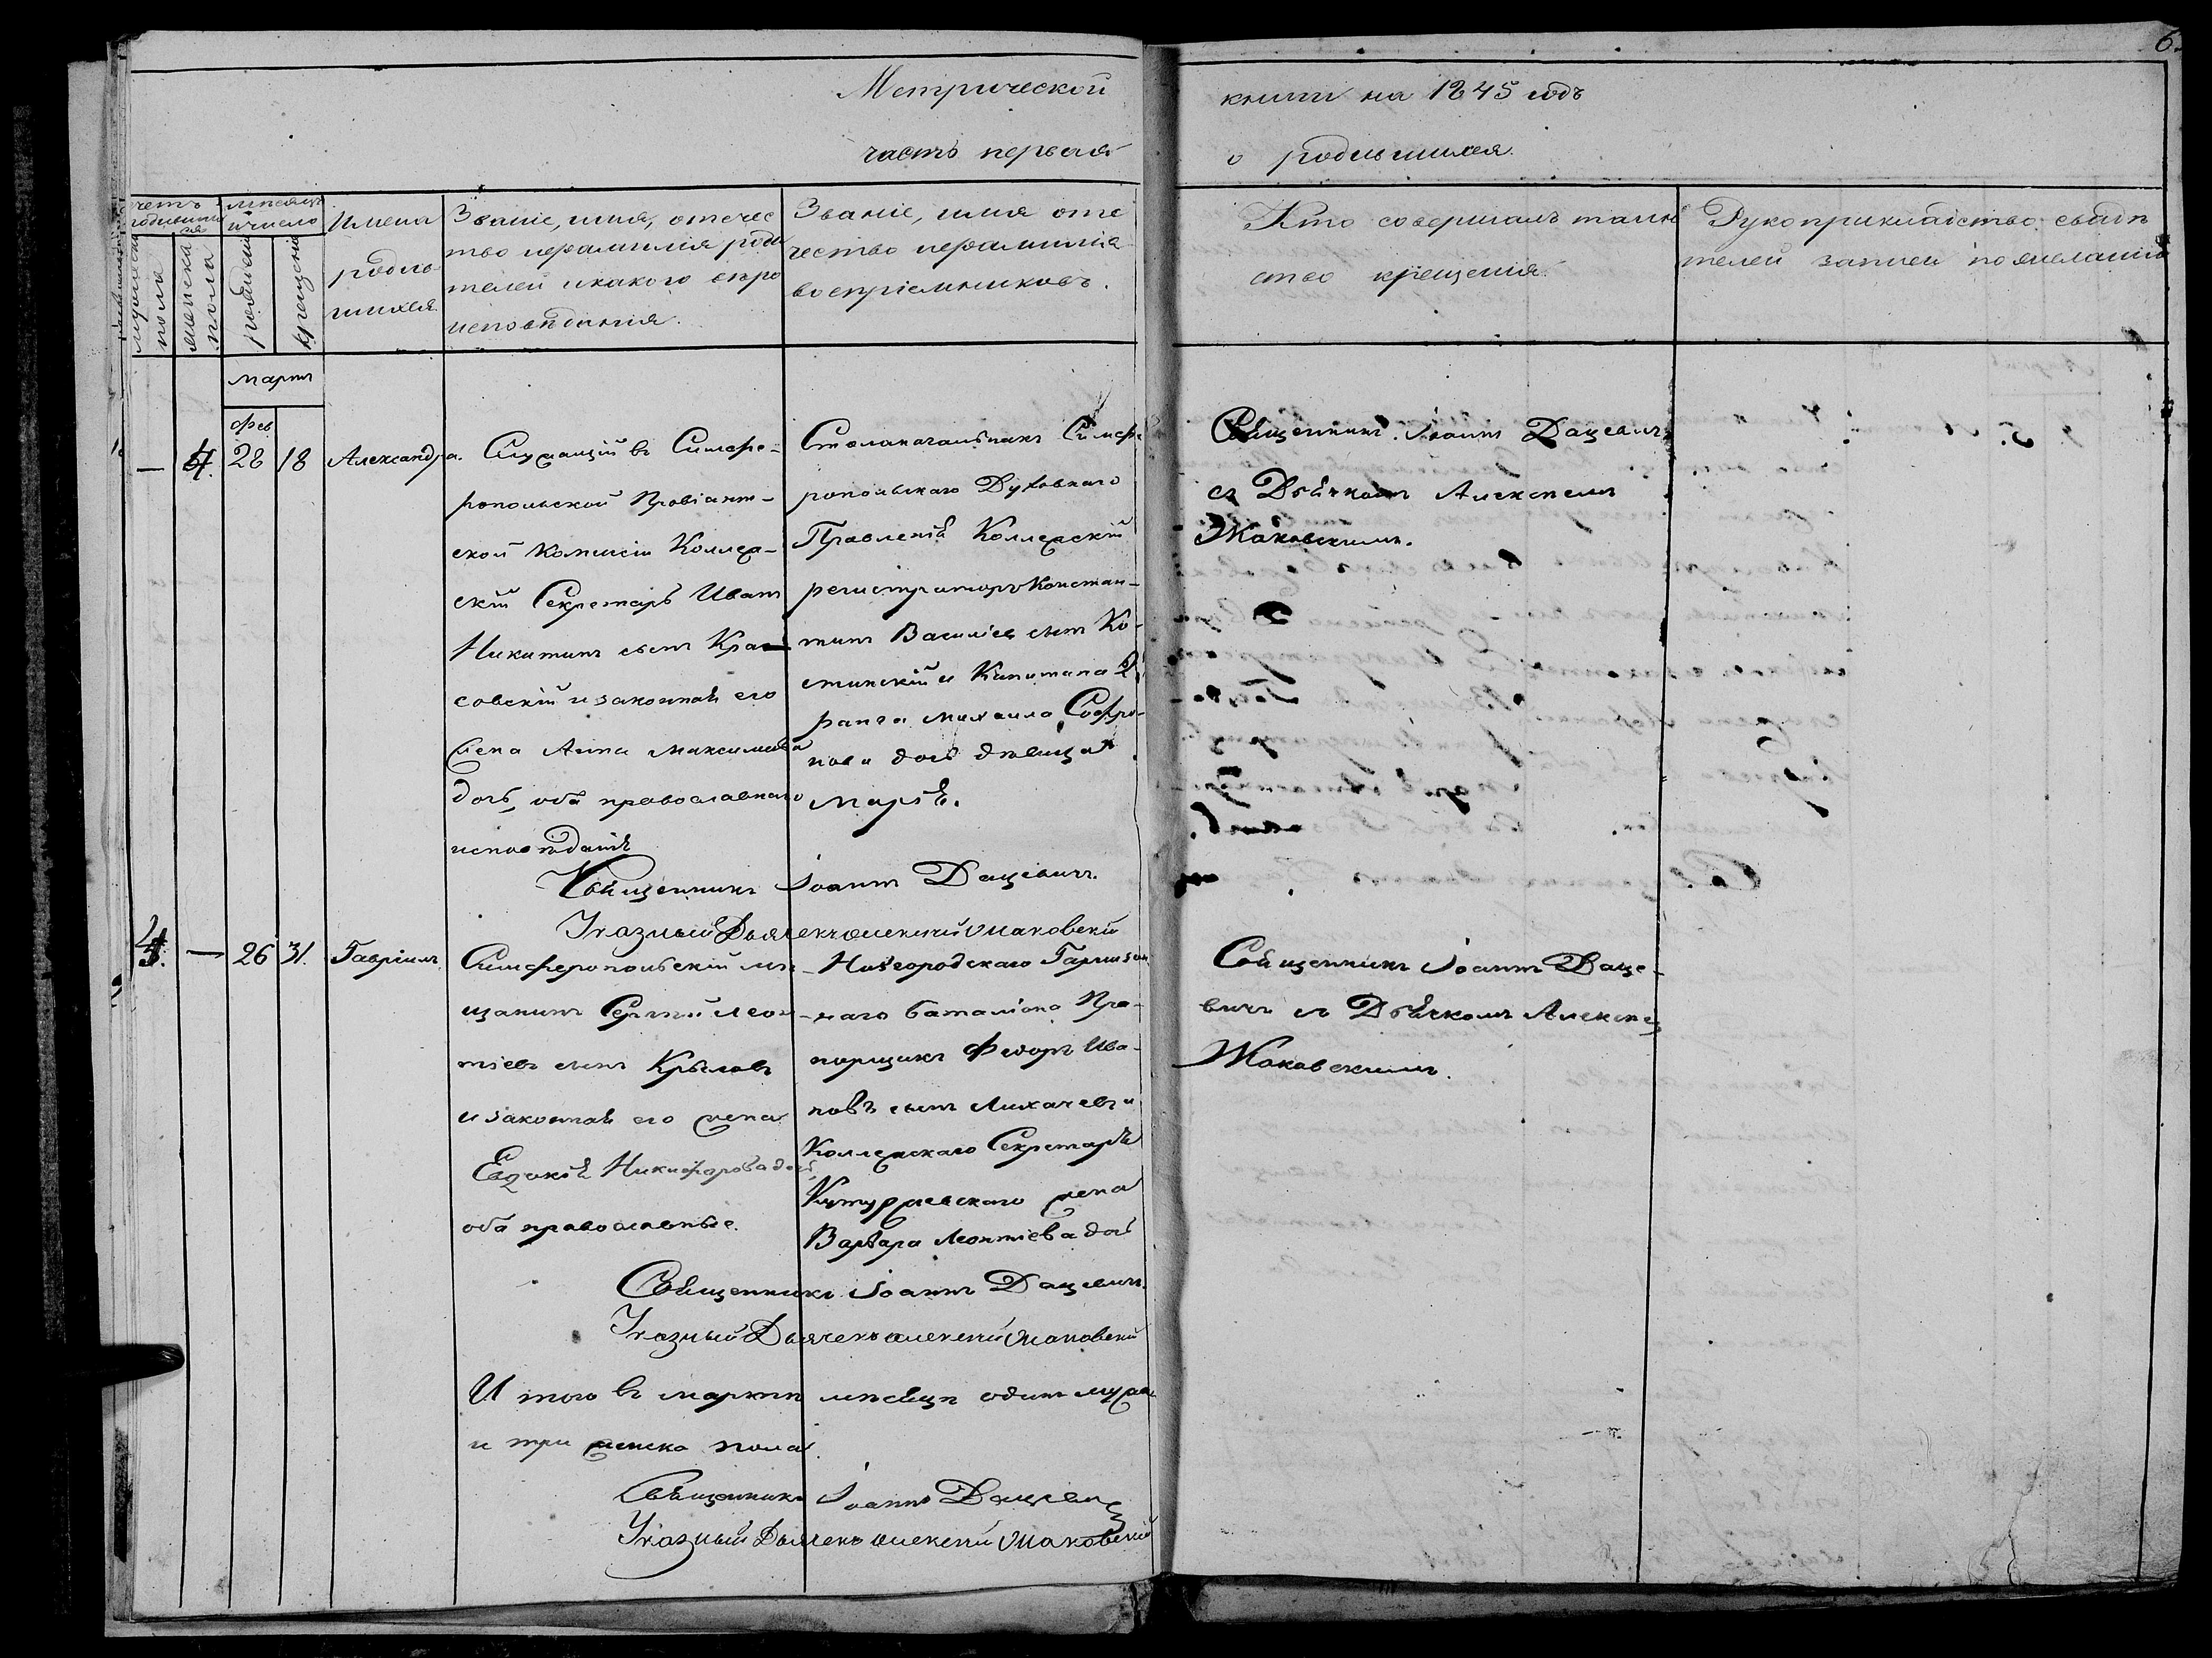 6.
Метрической
часть первая
книги на 1845 годъ
о родившихся.
счетъ
родившихся
мужеска
пола
женска
пола
мѣсяцъ
и число
рожденія
крещенія
Имена
родив-
шихся.
Званіе, имя, отечес
тво и фамилія роди
телей и какого вѣро
исповѣданія.
Званіе, имя оте
чество и фамилія
воспріемниковъ.
Кто совершалъ таин
ство крещенія.
Рукоприкладство свидѣ
телей записи по желанію
мартъ
фев
— 4. 28 18 Александра.
Служащій въ Симфе-
ропольской Провіант-
ской Комисіи Коллеж-
скій Секретарь Иванъ
Никитинъ сынъ Кра-
совскій и законная его
жена Анна Максимова
дочь, оба православнаго
исповѣданія
Столоначальникъ Симфе
ропольскаго Духовнаго
Правленія Коллежскій
регистраторъ Констан-
тинъ Василіев сынъ Ко-
стинскій и Капитана 2
ранга Михаила Софро-
нова дочь дѣвица
Марія.
Священникъ Іоаннъ Дацевичъ
съ Дьячкомъ Алексѣемъ
Маковскимъ.
Священникъ Іоаннъ Дацевичъ.
Указный Дьячекъ Алексѣй Маковскій
— 26 31. Гавріилъ.
Симферопольскій мѣ-
щанинъ Сергѣй Леон-
тіевъ сынъ Крыловъ
и законная его жена
Евдокія Никифорова дочь,
оба православные.
Нижгородскаго Гарнизон
наго баталіона Пра-
порщикъ Федоръ Ива-
новъ сынъ Лихачевъ и
Коллежскаго Секретаря
жена
Варвара Леонтіева дочь
Священникъ Іоаннъ Даце-
вичъ съ Дьячкомъ Алексѣемъ
Маковскимъ.
Священникъ Іоаннъ Дацевичъ.
Указный Дьячекъ Алексѣй Маковскій
И того въ мартѣ мѣсяцѣ одинъ мужеска
и три женска пола.
Священникъ Іоаннъ Дацевичъ
Указный Дьячекъ Алексѣй Маковскій